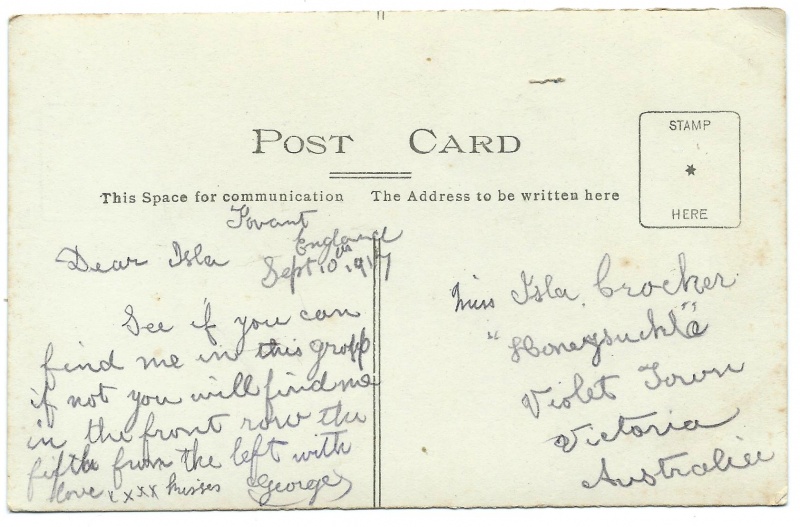 POST CARD
STAMP
HERE
This Space for communication
The Address to be written here
Fovant
England
Sept 10th 1917
Dear Isla
See if you can
find me in this group
if not you will find me
in the front row the
fifth from the left with
love xxxx kisses George
Miss Isla Crocker
"Honeysuckle"
Violet Town
Victoria
Australia